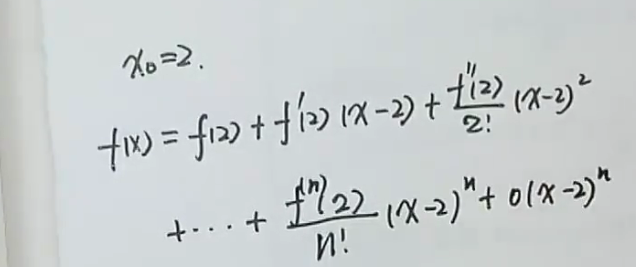 x₀=2.
f(x) = f(2) + f'(2) (x-2) + f''(2)/2! (x-2)²
+ ... + f⁽ⁿ⁾(2)/n! (x-2)ⁿ + o(x-2)ⁿ